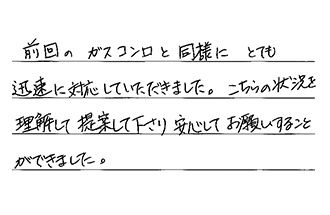 前回の ガスコンロと同様に とても
迅速に対応していただきました。こちらの状況を
理解して提案して下さり安心してお願いすること
ができました。